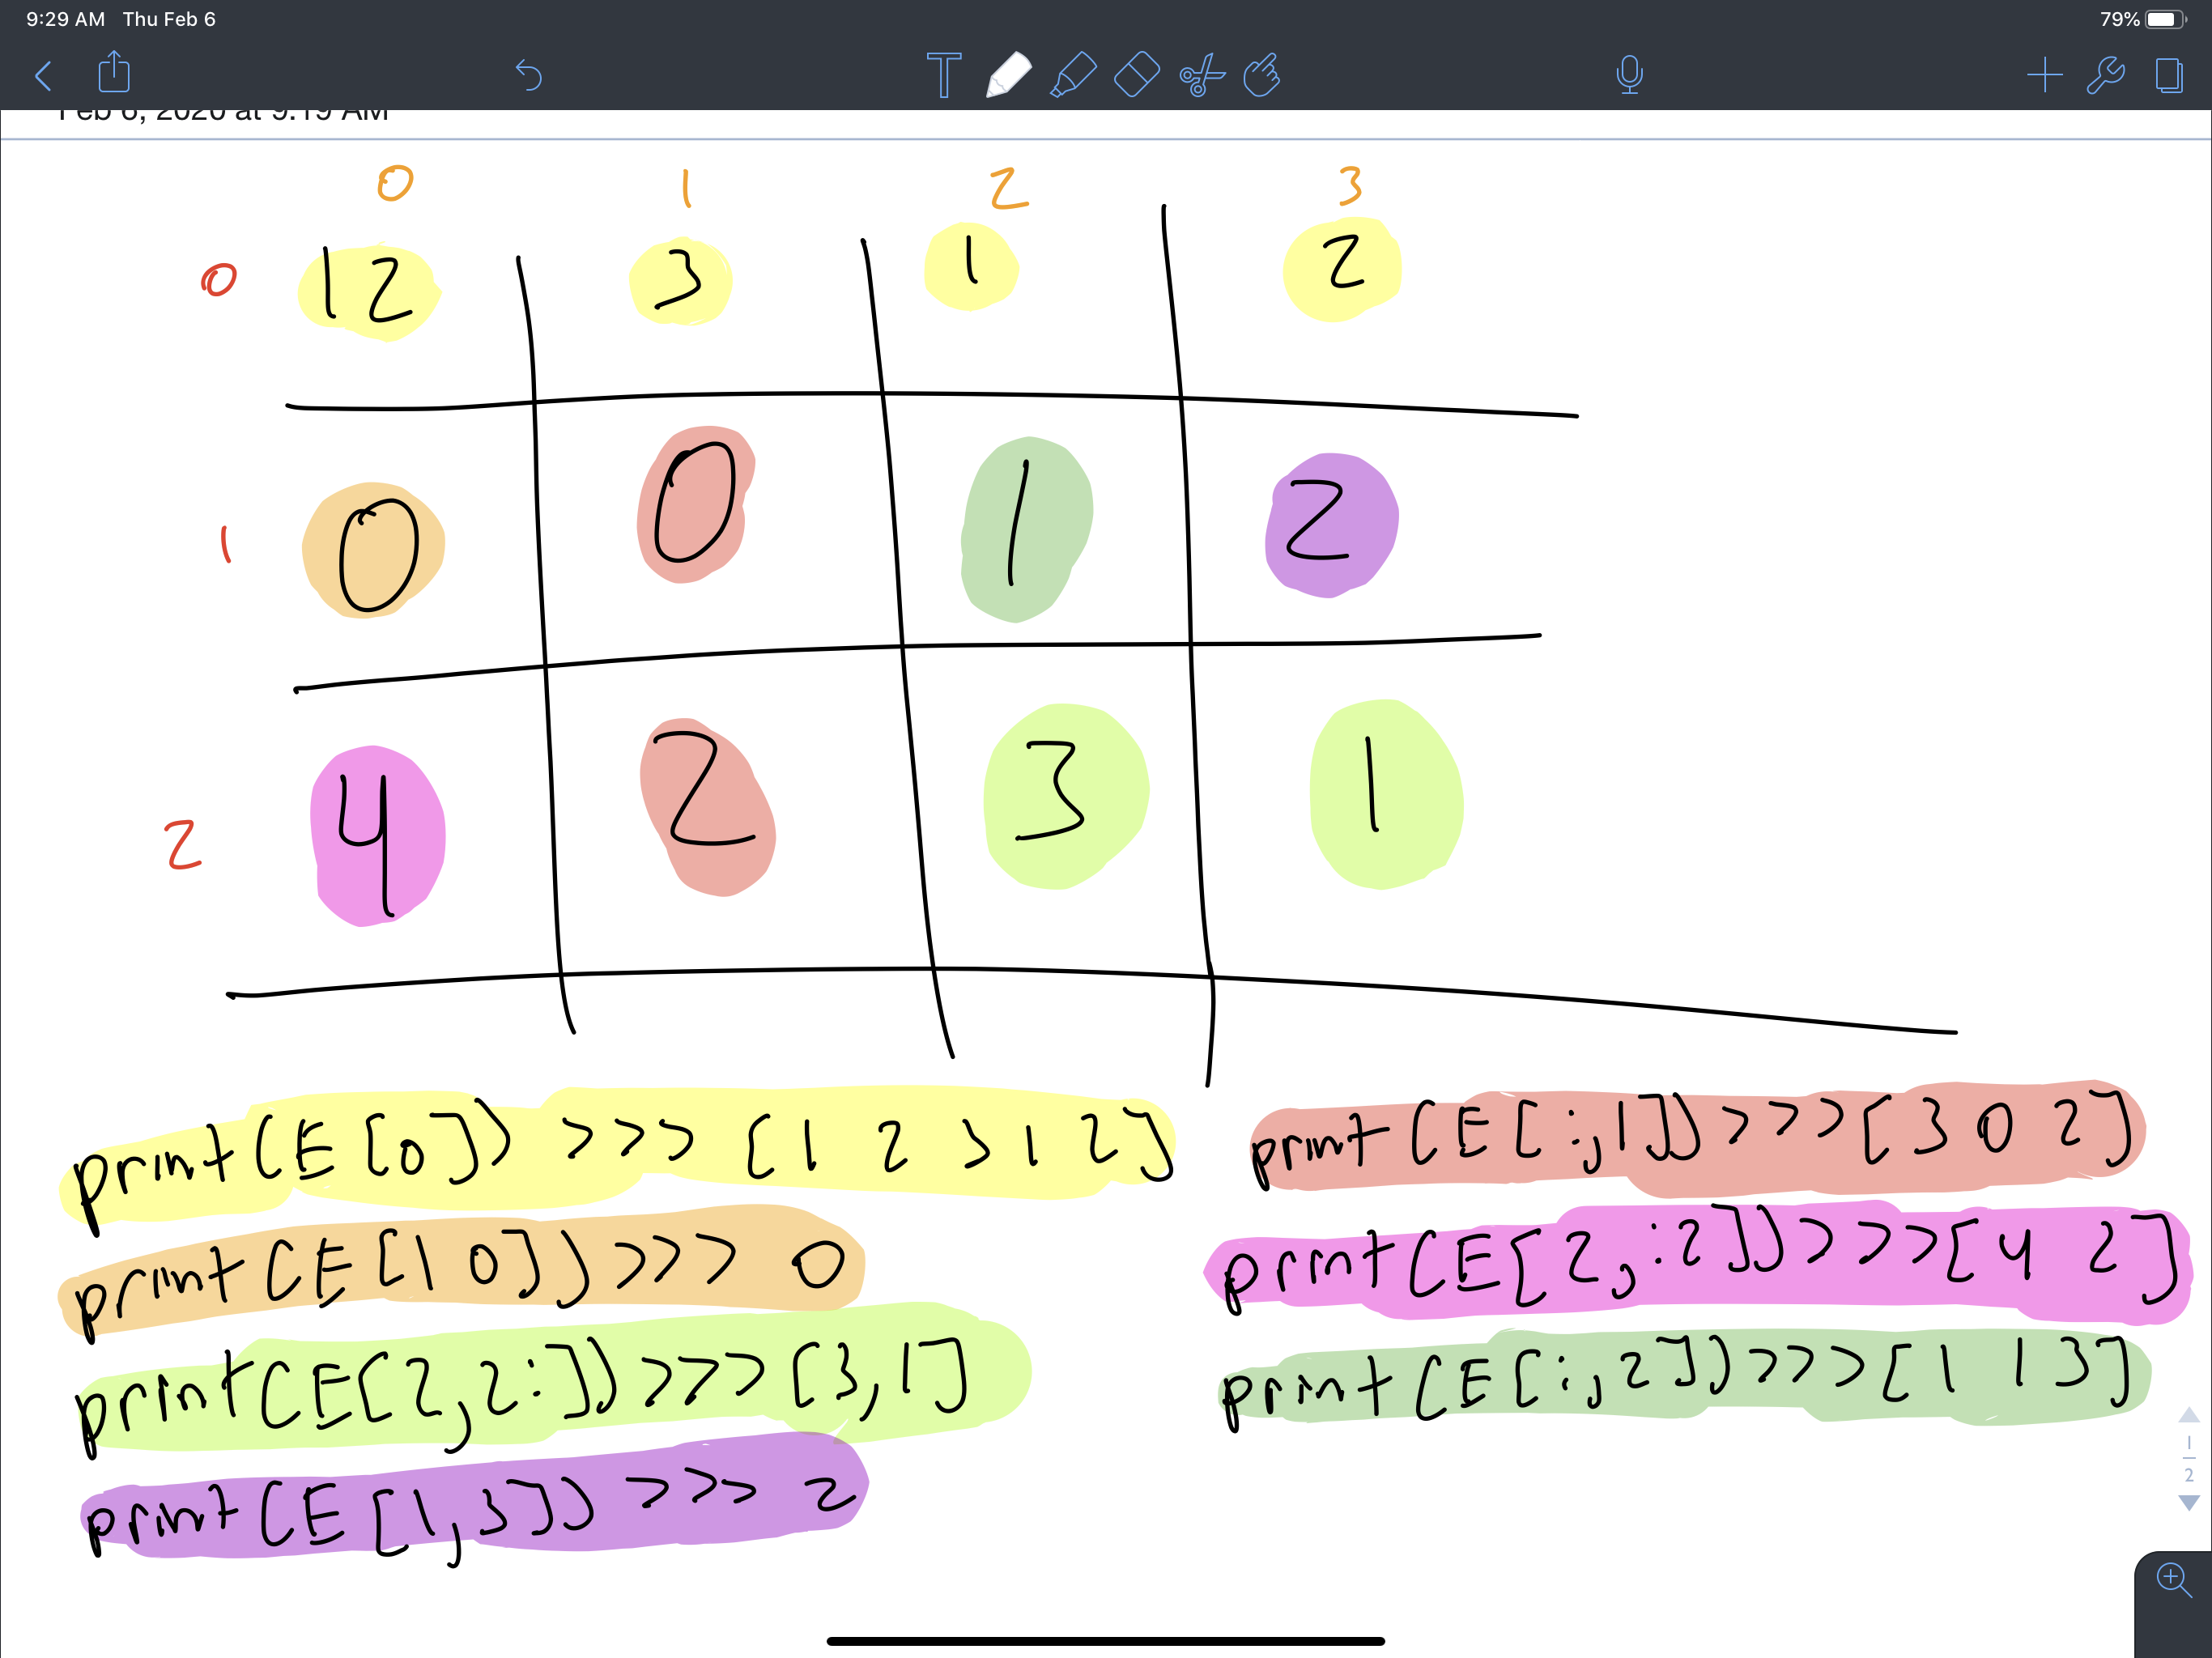 9:29 AM Thu Feb 6 79%
Feb 6, 2020 at 9:19 AM
0 1 2 3
0 12 3 1 2
1 0 0 1 2
2 4 2 3 1
print (E [0]) >>> [12 3 1 2]
print (E[1 0]) >>> 0
print(E[2,2:]) >>> [3,1]
print(E[1,3]) >>> 2
print (E[:,1]) >>> [3 0 2]
print(E[2,:2]) >>> [4 2]
print (E[:,2]) >>> [1 1 3]
1
2